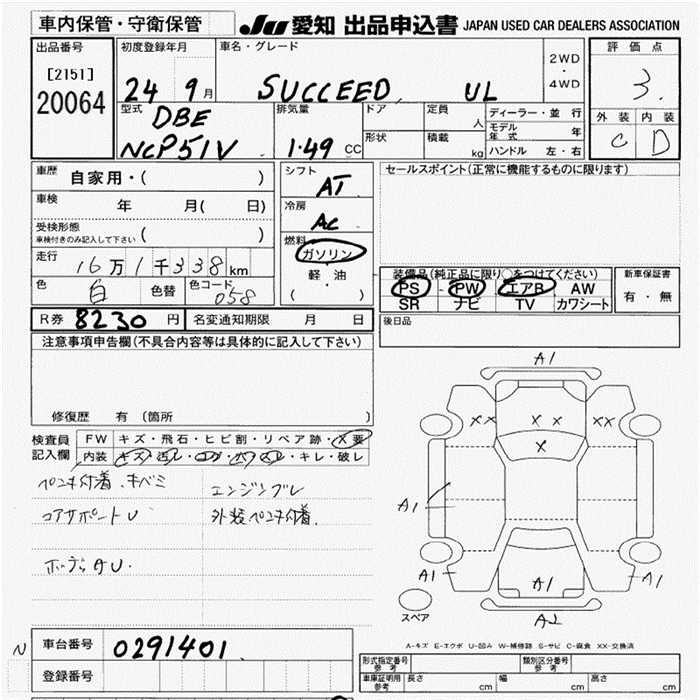 車内保管・守衛保管
JU 愛知 出品申込書 JAPAN USED CAR DEALERS ASSOCIATION
出品番号
[2151]
20064
初度登録年月
24 9月
車名・グレード
SUCCEED UL
2WD
・
4WD
評価点
3.
外装 内装
C D
型式
DBE
NCP51V
排気量
1.49 CC
ドア
形状
定員 人
積載 kg
ディーラー・並行
モデル年式 年
ハンドル 左・右
車歴 自家用・( )
車検 年 月( 日)
受検形態
車検付きのみ記入して下さい ( )
走行 16万1千338km
色 白 色替 色コード 058
シフト
AT
冷房
AC
燃料
ガソリン
軽・油
( )
セールスポイント(正常に機能するものに限ります)
装備品(純正品に限り○をつけてください)
PS PW エアB AW
SR ナビ TV カワシート
新車保証書
有・無
R券 8230円 名変通知期限 月 日
後日品
注意事項申告欄(不具合内容等は具体的に記入して下さい)
修復歴 有 (箇所 )
検査員
記入欄
FW キズ・飛石・ヒビ割・リペア跡・X要
内装 キズ・汚レ・コゲ・穴・スレ・キレ・破レ
ペンキ付着
エンジンブレ
コアサポートU
外装ペンキ付着
A1
XX XX XX
X
A1
A1 A1 A1
スペア
A2
A-キズ E-エクボ U-凹み W-補修跡 S-サビ C-腐食 XX-交換済
N 車台番号 0291401
登録番号
形式指定番号
参考
類別区分番号
参考
車庫証明用
参考
長さ cm 幅 cm 高さ cm